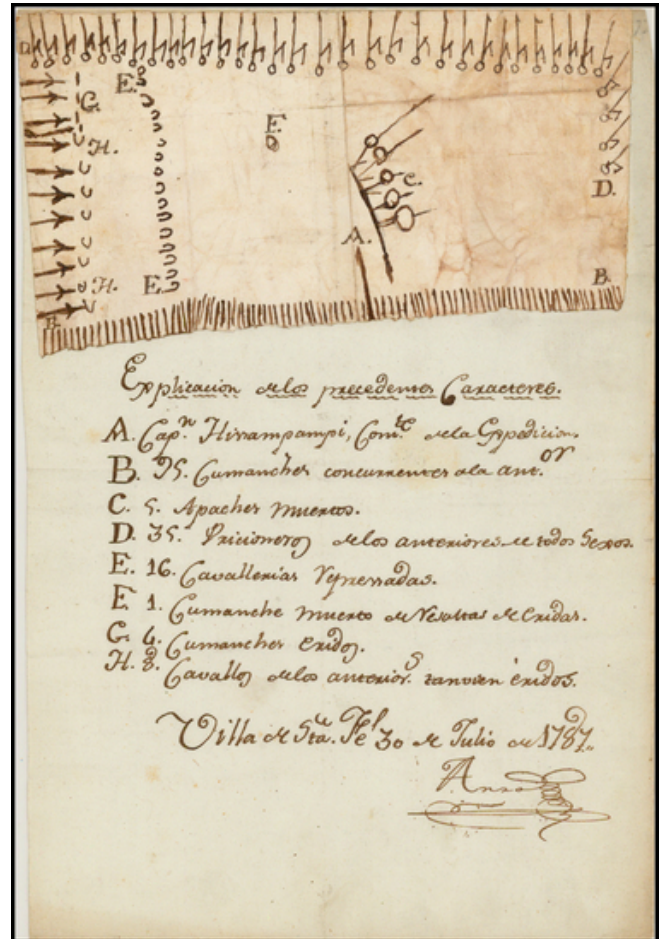 E.
G.
F.
H.
C.
D.
A.
H.
E.
B.
B.
Explicacion de los precedentes Caracteres.
A. Cap.n Hisampampi, Com.te de la Expedicion.
B. 95. Cumanches concurrentes a la ant.or
C. 5. Apaches muertos.
D. 35. Pricioneros de los anteriores de todos Sexos.
E. 16. Cavallerias
F. 1. Cumanche muerto de Resultas de Eridas.
G. 6. Cumanches Eridos.
H. 8. Cavallos de los anterior.s tanvien éridos.
Villa de S.ta Fe 30 de Julio de 1787.
Anza